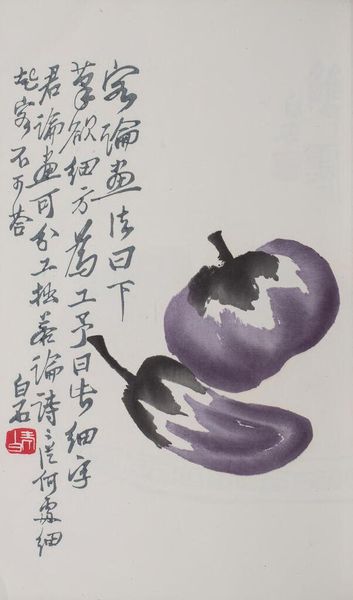 客論畫法曰下
筆欲細方為工予曰此細字
君論畫可分工拙若論詩〻從何處細
起客不可荅
白石